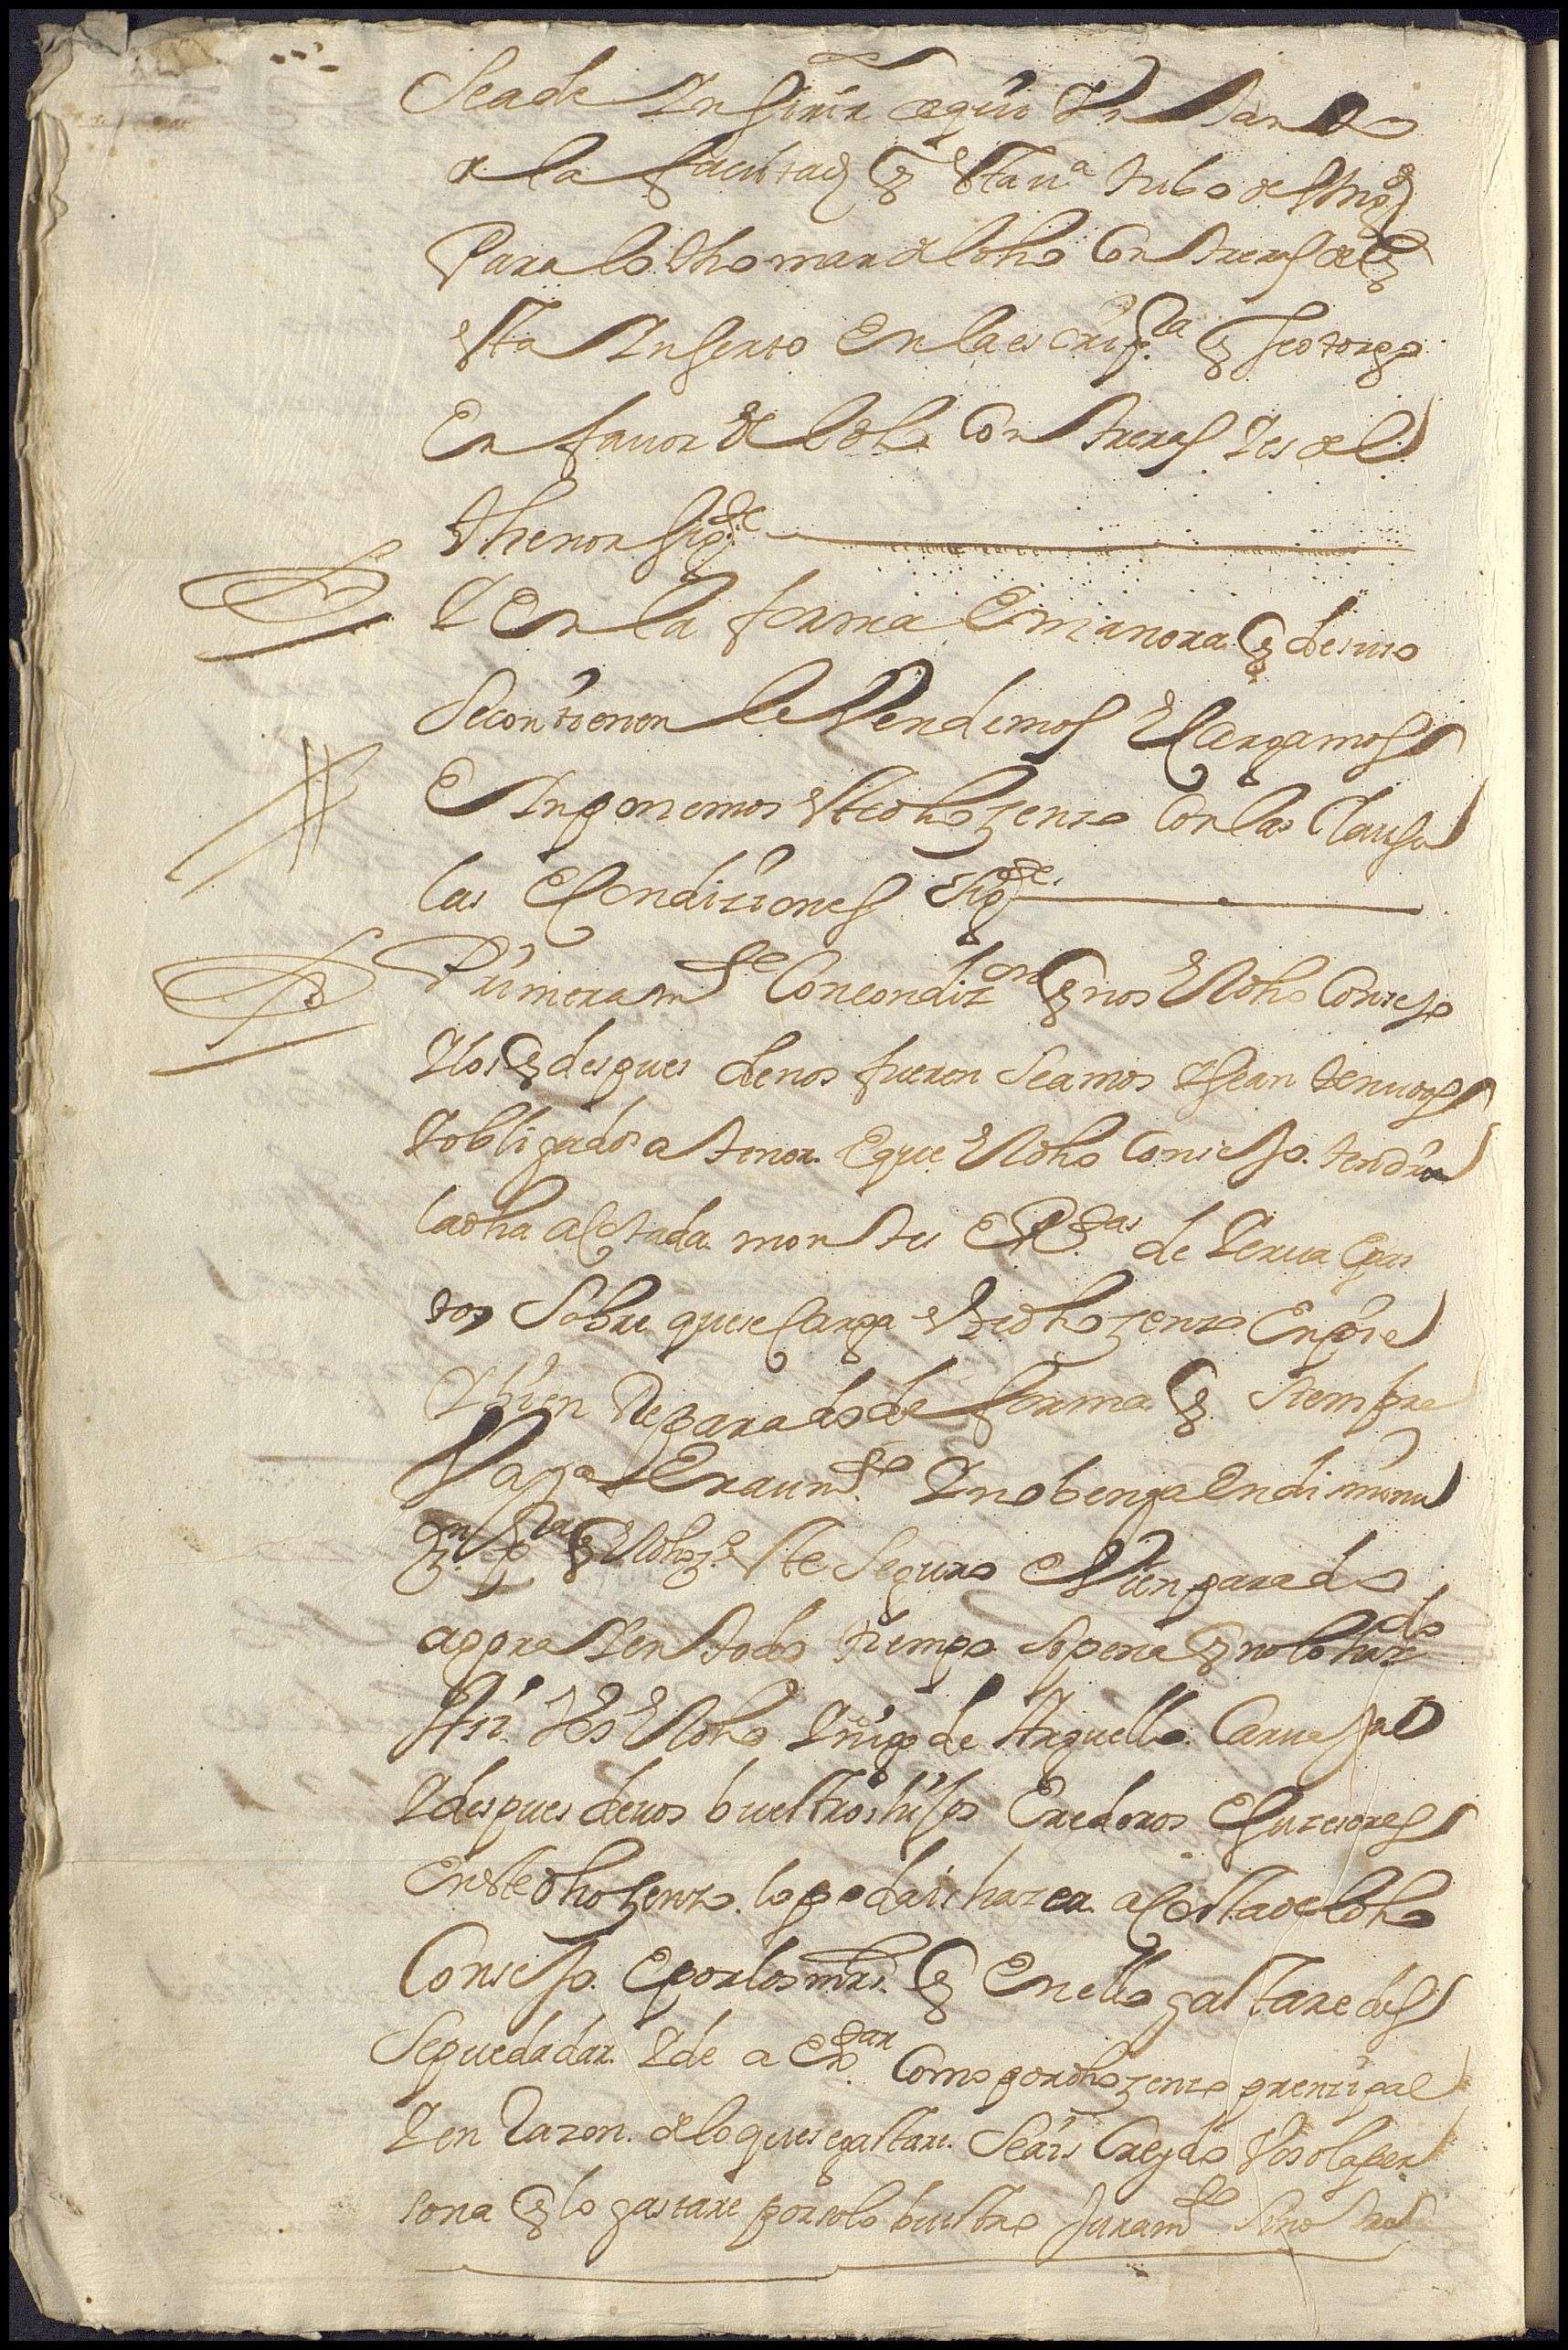 Seade Insirir aqui Un tanto
de la facultad q esta va tubo de su mgd
Para lo thomar el dho Contreras de q
esta Inserto En la escripra q se otorgo
En favor del dho Contreras Y es del
thenor sigte
Y En la forma E manera q desuso
Secontienen le Vendemos E Cargamos
E Inponemos este dho zenso Con las Clausu
las E Condiziones sigtes
Primeramte Con condizon q nos El dho Consejo
Y los q despues de nos fueren Seamos Y sean tenudos
Y obligados a tener E que El dho Consejo tendra
la dha acotada monte E de Yerva E pas
tos Sobre que se Carga este dho zenso En pie
Y bien Reparado de forma q siempre
Vaya En aumto Y no benga En diminu
zn pra q El dho zo este Seguro E Vien parado
agora Y en todo tiempo so pena q no lo haziendo
Asi Vos El dho Yñigo de Arguello Carvajal
Y despues de vos buestros hijos Erederos E suzesores
En este dho zenso lo podais hazer a Costa del dho
Consejo E por los mrs q En ello gastaredes
Se pueda dar Y de a Exar Como por dho zenso prenzipal
Y en Razon de lo que se gastare Seais Creydo Vos o la per
sona q lo gastare por solo buestro Juramto Sin otra